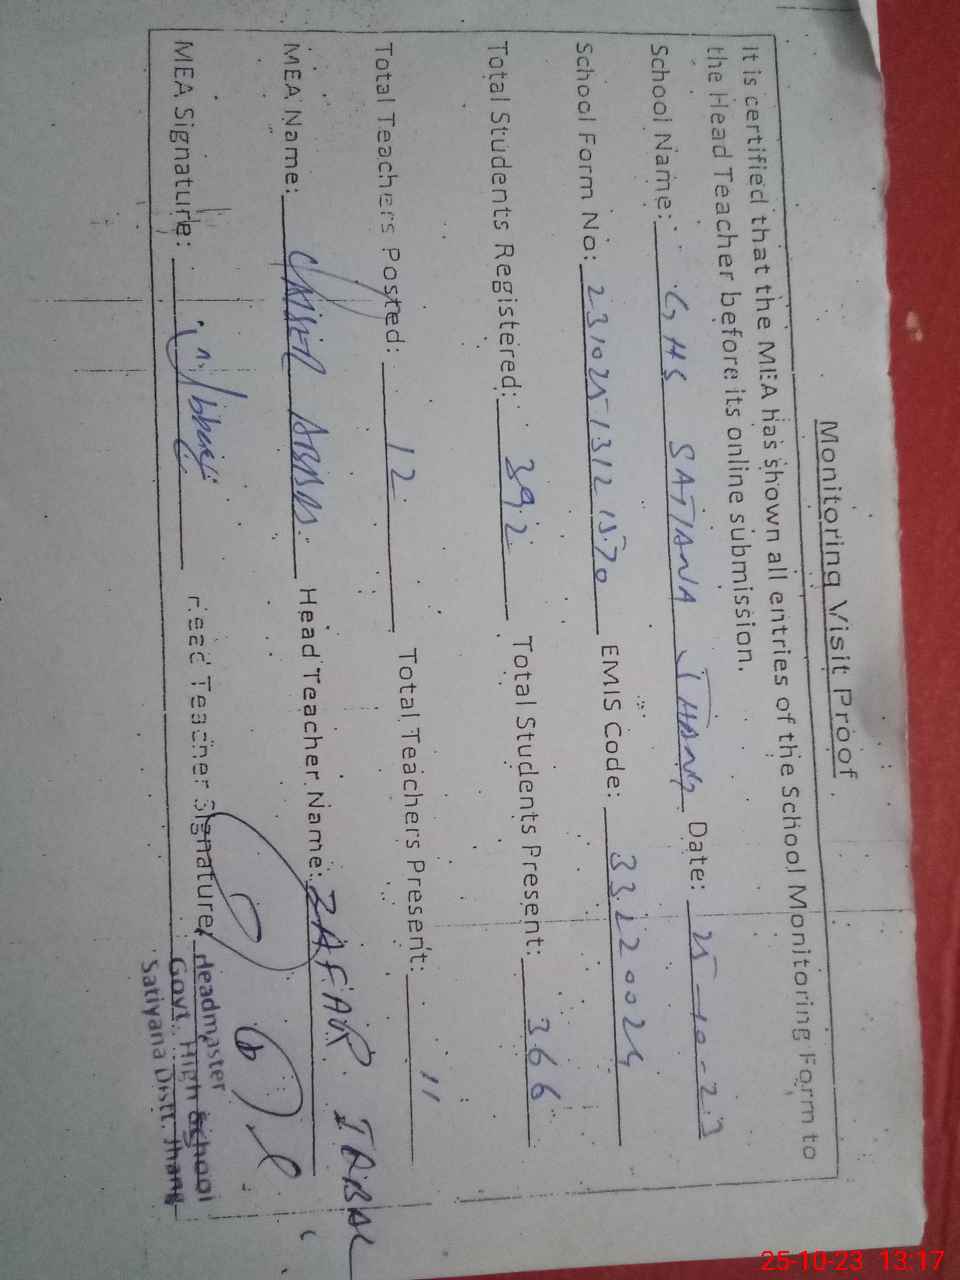 Monitoring Visit Proof
It is certified that the MEA has shown all entries of the School Monitoring Form to
the Head Teacher before its online submission.
School Name: GHS SATIANA JHANG Date: 25-10-23
School Form No: 23102513121570 EMIS Code: 33220024
Total Students Registered: 392 Total Students Present: 366
Total Teachers Posted: 12 Total Teachers Present: 11
MEA Name: ABBAS Head Teacher Name: ZAFAR IQBAL
MEA Signature: Head Teacher Signature:
Headmaster
Govt. High School
Satiyana Distt. Jhang
25-10-23 13:17